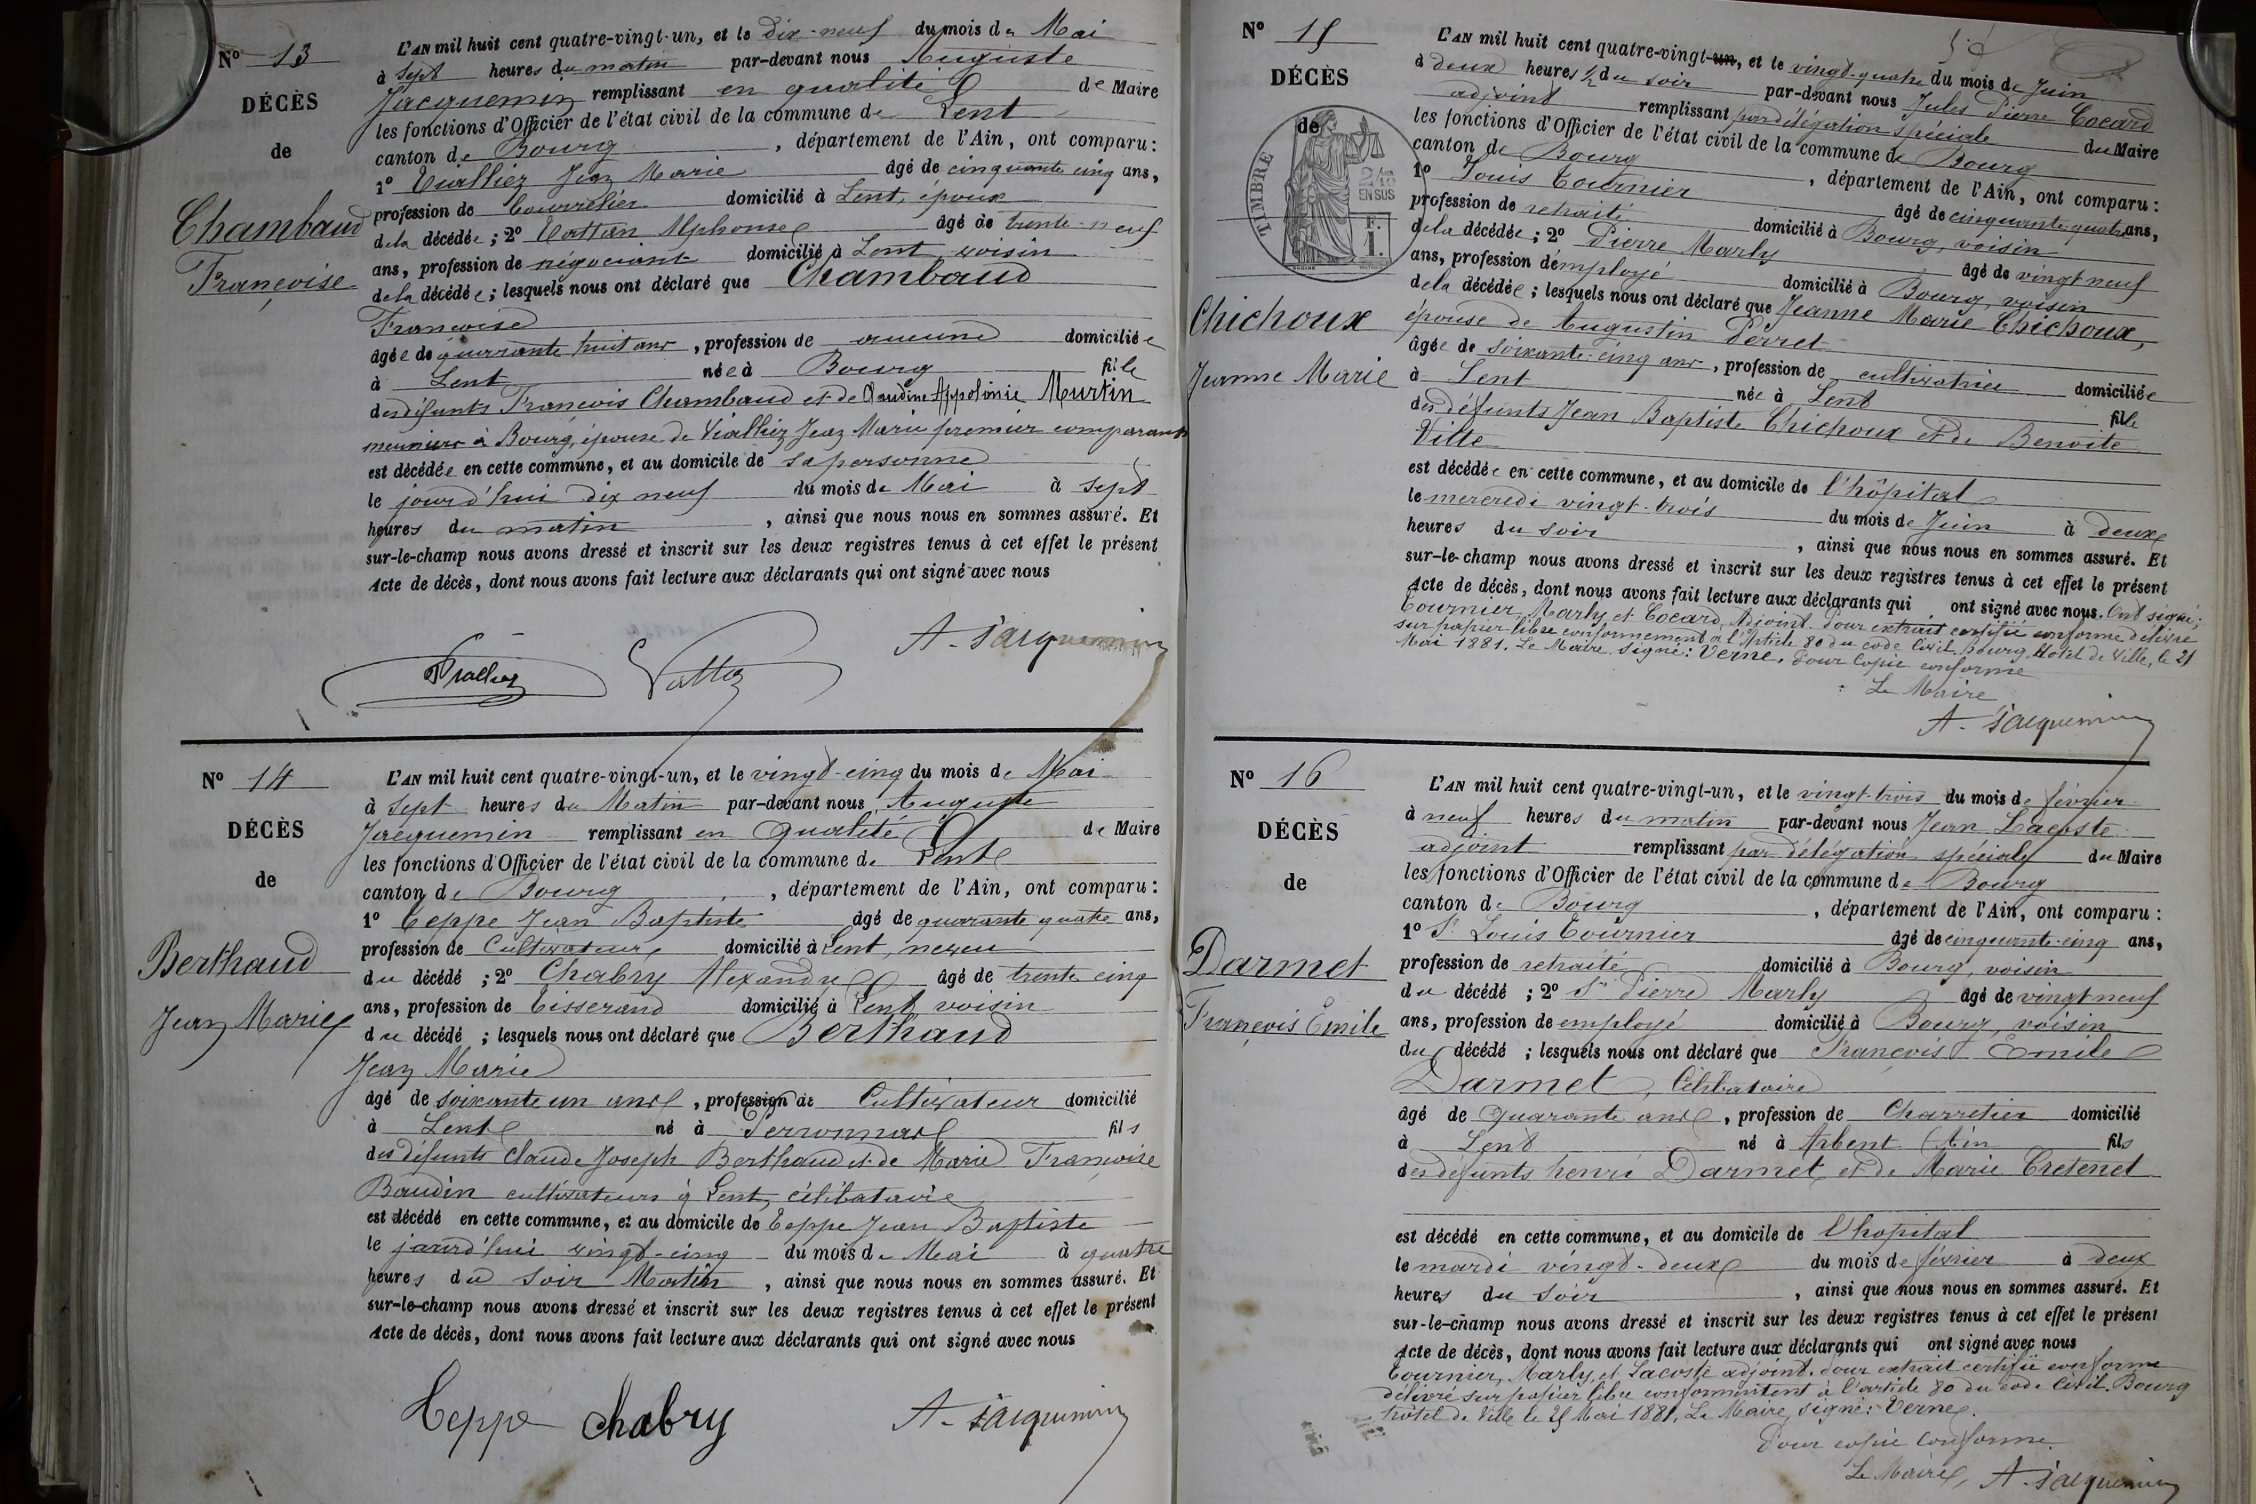 N° 13
DÉCÈS
de
Chambaud
Françoise
L'AN mil huit cent quatre-vingt-un, et le dix-neuf du mois de Mai
à sept heures du matin par-devant nous Auguste
Jacquemin remplissant en qualité de Maire
les fonctions d'Officier de l'état civil de la commune de Lent
canton de Bourg, département de l'Ain, ont comparu :
1° Vialliez Jean Marie âgé de cinquante cinq ans,
profession de Courrelier domicilié à Lent, époux
de la décédée ; 2° Alphonse âgé de trente-neuf
ans, profession de négociant domicilié à Lent voisin
de la décédée ; lesquels nous ont déclaré que Chambaud
Françoise
âgée de quarante huit ans, profession de aucune domiciliée
à Lent née à Bourg fille
des défunts François Chambaud et de Claudine Appolonie Murtin
meuniers à Bourg, épouse de Vialliez Jean Marie premier comparant
est décédée en cette commune, et au domicile de sa personne
le jourd'hui dix neuf du mois de Mai à sept
heures du matin, ainsi que nous nous en sommes assuré. Et
sur-le-champ nous avons dressé et inscrit sur les deux registres tenus à cet effet le présent
Acte de décès, dont nous avons fait lecture aux déclarants qui ont signé avec nous
Vialliez A. Jacquemin
N° 14
DÉCÈS
de
Berthaud
Jean Marie
L'AN mil huit cent quatre-vingt-un, et le vingt-cinq du mois de Mai
à sept heures du Matin par-devant nous Auguste
Jacquemin remplissant en qualité de Maire
les fonctions d'Officier de l'état civil de la commune de Lent
canton de Bourg, département de l'Ain, ont comparu :
1° Teppe Jean Baptiste âgé de quarante quatre ans,
profession de Cultivateur, domicilié à Lent, neveu
du décédé ; 2° Chabry Alexandre âgé de trente cinq
ans, profession de Tisserand domicilié à Lent voisin
du décédé ; lesquels nous ont déclaré que Berthaud
Jean Marie
âgé de soixante un ans, profession de Cultivateur domicilié
à Lent né à Perronnas fils
des défunts Claude Joseph Berthaud et de Marie Françoise
Baudin cultivateurs à Lent, célibataire
est décédé en cette commune, et au domicile de Teppe Jean Baptiste
le jourd'hui vingt-cinq du mois de Mai à quatre
heures du soir Matin, ainsi que nous nous en sommes assuré. Et
sur-le-champ nous avons dressé et inscrit sur les deux registres tenus à cet effet le présent
Acte de décès, dont nous avons fait lecture aux déclarants qui ont signé avec nous
Teppe Chabry A. Jacquemin
N° 15
DÉCÈS
de
TIMBRE
2/10 EN SUS
F. 1.
Chichoux
Jeanne Marie
L'AN mil huit cent quatre-vingt-un, et le vingt-quatre du mois de Juin
à deux heures ½ du soir par-devant nous Jules Pierre Cocard
adjoint remplissant par délégation spéciale du Maire
les fonctions d'Officier de l'état civil de la commune de Bourg
canton de Bourg, département de l'Ain, ont comparu :
1° Louis Tournier âgé de cinquante quatre ans,
profession de retraité domicilié à Bourg, voisin
de la décédée ; 2° Pierre Marly âgé de vingt neuf
ans, profession d'employé domicilié à Bourg, voisin
de la décédée ; lesquels nous ont déclaré que Jeanne Marie Chichoux,
épouse de Augustin Perret
âgée de soixante-cinq ans, profession de cultivatrice domiciliée
à Lent née à Lent fille
des défunts Jean Baptiste Chichoux et de Benoite
Ville
est décédée en cette commune, et au domicile de l'hôpital
le mercredi vingt-trois du mois de Juin à deux
heures du soir, ainsi que nous nous en sommes assuré. Et
sur-le-champ nous avons dressé et inscrit sur les deux registres tenus à cet effet le présent
Acte de décès, dont nous avons fait lecture aux déclarants qui ont signé avec nous. Ont signé :
Tournier, Marly et Cocard, Adjoint. Pour extrait certifié conforme délivré
sur papier libre conformément à l'Article 80 du code Civil. Bourg, Hotel de Ville, le 21
Mai 1881. Le Maire signé : Verne. Pour Copie conforme
Le Maire
A. Jacquemin
N° 16
DÉCÈS
de
Darmet
François Emile
L'AN mil huit cent quatre-vingt-un, et le vingt-trois du mois de février
à neuf heures du matin par-devant nous Jean Lacoste
adjoint remplissant par délégation spéciale du Maire
les fonctions d'Officier de l'état civil de la commune de Bourg
canton de Bourg, département de l'Ain, ont comparu :
1° Sr Louis Tournier âgé de cinquante-cinq ans,
profession de retraité domicilié à Bourg, voisin
du décédé ; 2° Sr Pierre Marly âgé de vingt neuf
ans, profession de employé domicilié à Bourg, voisin
du décédé ; lesquels nous ont déclaré que François Emile
Darmet, Célibataire
âgé de quarante ans, profession de Charretier domicilié
à Lent né à Arbent (Ain fils
des défunts henri Darmet et de Marie Cretenet
est décédé en cette commune, et au domicile de l'hopital
le mardi vingt-deux du mois de février à deux
heures du soir, ainsi que nous nous en sommes assuré. Et
sur-le-champ nous avons dressé et inscrit sur les deux registres tenus à cet effet le présent
Acte de décès, dont nous avons fait lecture aux déclarants qui ont signé avec nous
Tournier, Marly, et Lacoste adjoint. Pour extrait certifié conforme
délivré sur papier libre conformément à l'article 80 du code Civil. Bourg
hôtel de Ville le 25 Mai 1881, Le Maire, signé : Verne.
Pour copie conforme.
Le Maire, A. Jacquemin